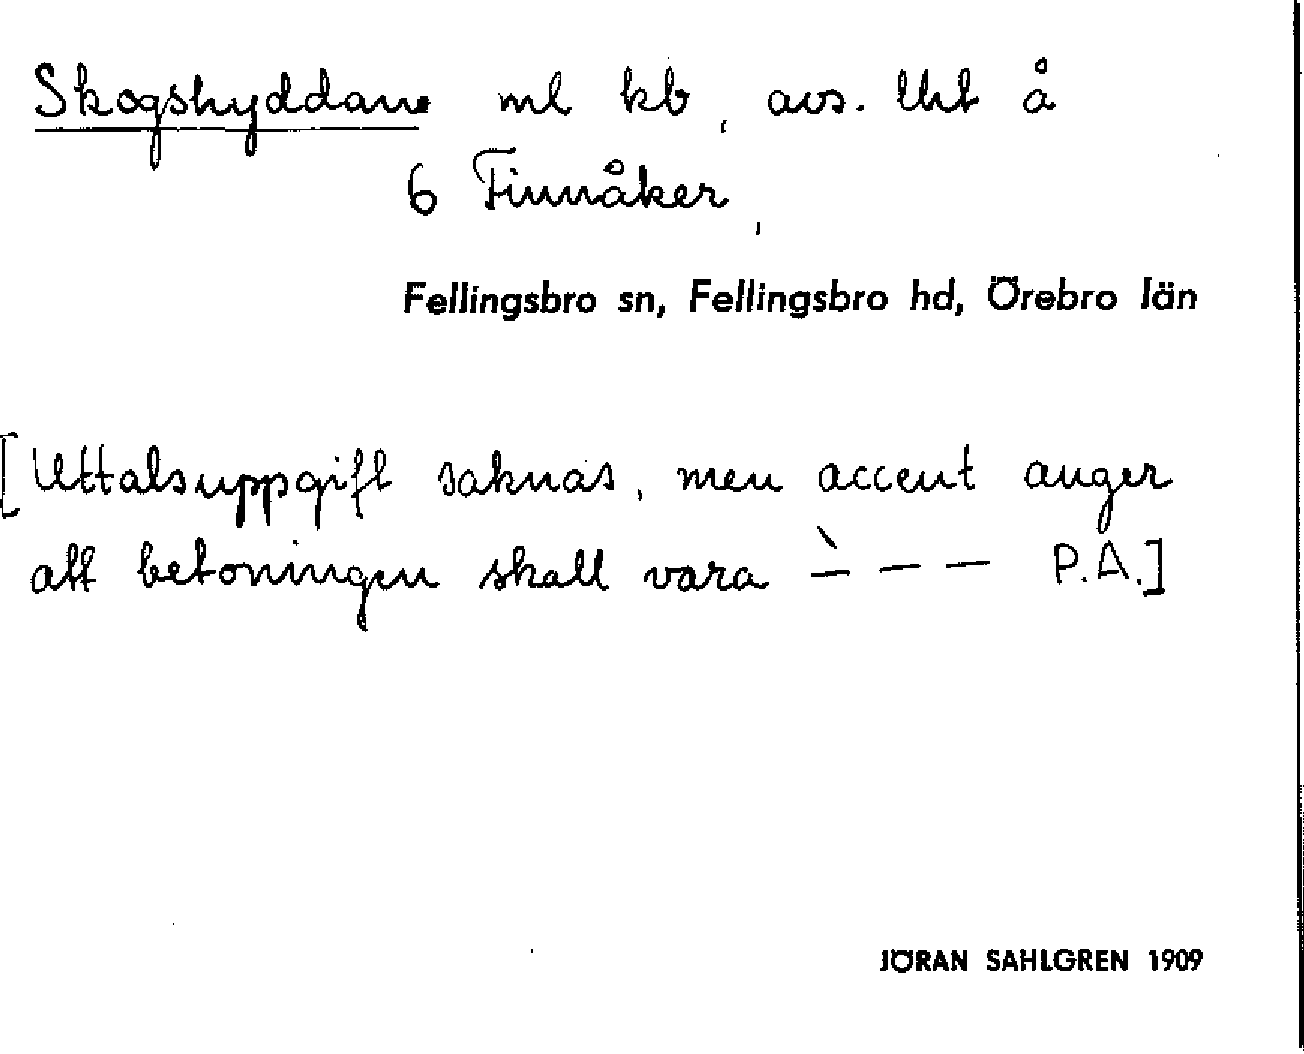 Skogshyddan ml kb, avs. Uht å
6 Finnåker,
Fellingsbro sn, Fellingsbro hd, Örebro län
[Uttalsuppgift saknas, men accent anger
att betoningen skall vara ˋ– – – P.A.]
JÖRAN SAHLGREN 1909